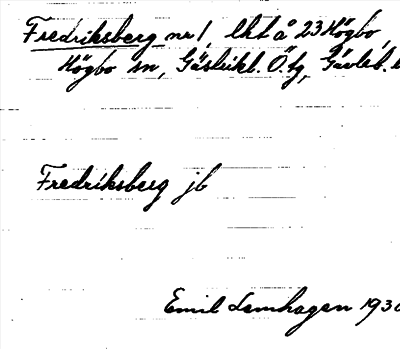 Fredriksberg nr 1, lht å 23 Högbo,
Högbo sn, Gästrikl. Ö. tg, Gävleb. l
Fredriksberg jb
Emil Lemhagen 1930